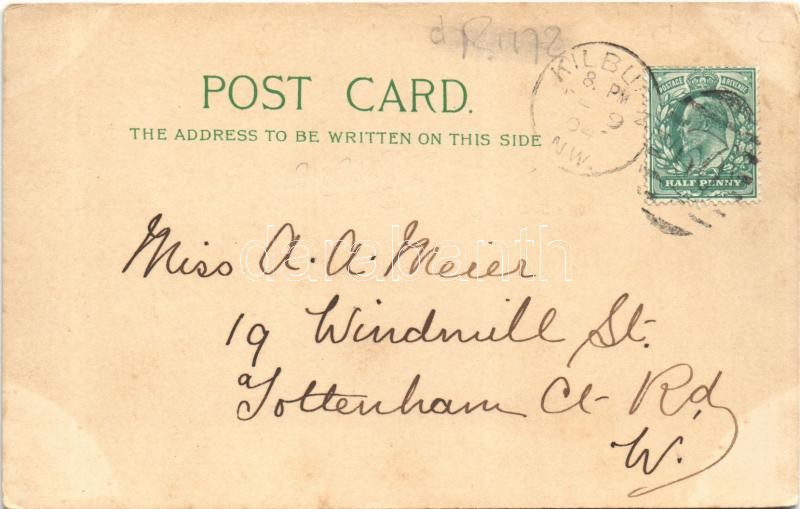 POST CARD.
THE ADDRESS TO BE WRITTEN ON THIS SIDE
KILBU
8. PM
9
04
N.W.
POSTAGE & REVENUE
HALF PENNY
Miss A. A. Meier
19 Windmill St.
Tottenham Ct Rd
W.
darabanth